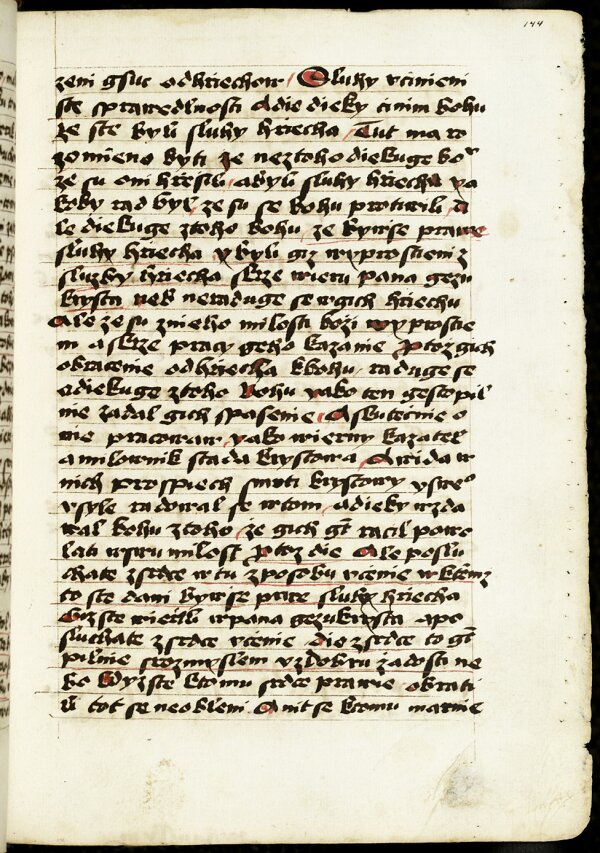 144
zeni gsuc odhriechow Sluhy vcinieni
ste sprawedlnosti A die dieky cinim bohu
ze ste byli sluhy hriecha Tut ma ro
zomieno byti ze neztoho diekuge bo
ze su oni hresili abyli sluhy hriecha ya
koby rad byl ze su se bohu protiwili A
le diekuge ztoho bohu ze bywse prawe
sluhy hriecha ybyli giz wyprostieni z
sluzby hriecha skrze wieru pana gezu
krysta neb neraduge se wgich hriechu
Ale ze su znieho milosti bozi wyprostie
ni a skrze pracy geho kazanie Protoz gich
obracenie odhriecha kbohu raduge se
a diekuge ztoho bohu yako ten gestopil
nie zadal gich spasenie A skutecnie o
nie pracowaw yako wierny kazatel
a milownik stada krystowa A wida w
nich prospiech smrti krystowy
vsyle radowal se wtom a dieky wzda
wal bohu ztoho ze gich gt racil powo
lati wswu milost Protoz die Ale poslu
chate zsrdce wtu zposobu vcenie wktemz
to ste dani bywse prwe sluhy hriecha
Giz ste wierili wpana gezukrysta apo
sluchate zsrdce vcenie die zsrdce to gt
pilnie srozmyslem vzdobru zadosti ne
bo kdyz ste ktomu srdce prawie obrati
li tot se neobleni Anit se ktomu marnie